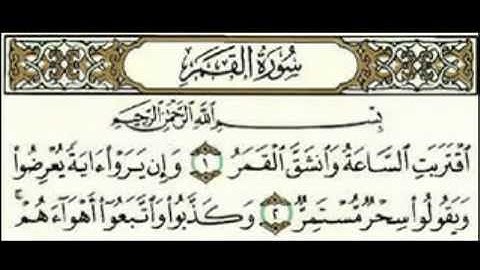 سُورَةُ القَمَرِ
بِسْمِ اللَّهِ الرَّحْمَٰنِ الرَّحِيمِ
ٱقْتَرَبَتِ ٱلسَّاعَةُ وَٱنشَقَّ ٱلْقَمَرُ ١ وَإِن يَرَوْا۟ ءَايَةً يُعْرِضُوا۟
وَيَقُولُوا۟ سِحْرٌ مُّسْتَمِرٌّ ٢ وَكَذَّبُوا۟ وَٱتَّبَعُوٓا۟ أَهْوَآءَهُمْ ۚ